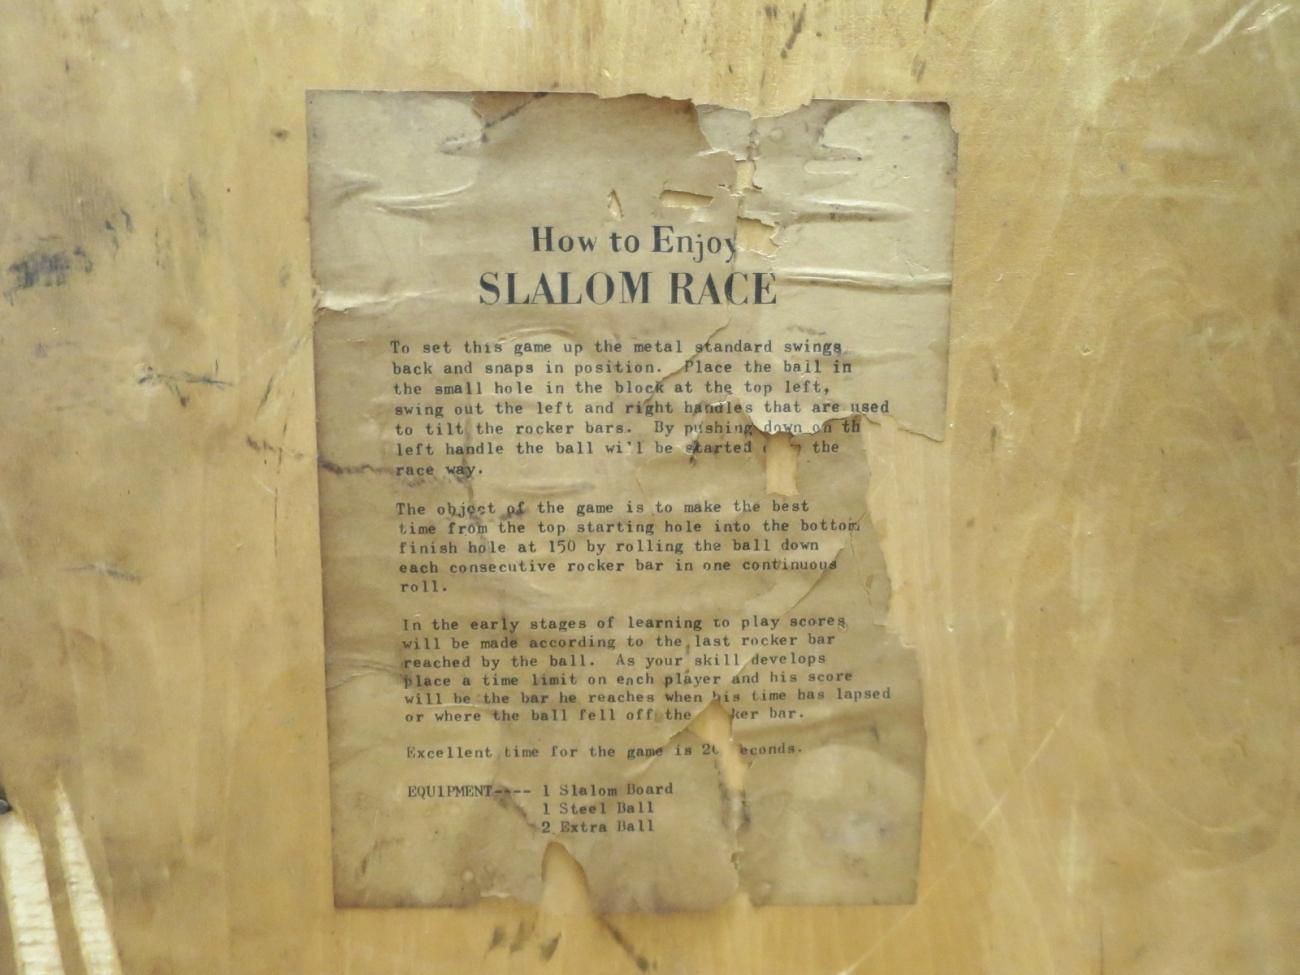 How to Enjoy
SLALOM RACE
To set this game up the metal standard swings
back and snaps in position. Place the ball in
the small hole in the block at the top left,
swing out the left and right handles that are used
to tilt the rocker bars. By pushing down on th
left handle the ball will be started the
race way.
The object of the game is to make the best
time from the top starting hole into the bottom
finish hole at 150 by rolling the ball down
each consecutive rocker bar in one continuous
roll.
In the early stages of learning to play scores
will be made according to the last rocker bar
reached by the ball. As your skill develops
place a time limit on each player and his score
will be the bar he reaches when his time has lapsed
or where the ball fell off the ker bar.
Excellent time for the game is econds.
EQUIPMENT---- 1 Slalom Board
1 Steel Ball
2 Extra Ball